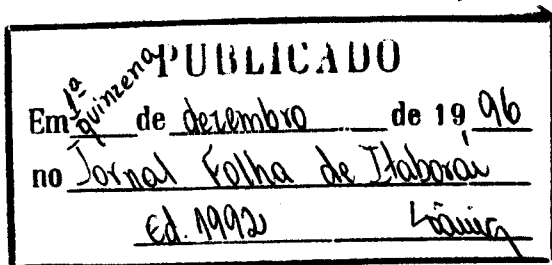 PUBLICADO
Em 1ª quinzena de dezembro de 19 96
no Jornal Folha de Itaboraí
Ed. 1992